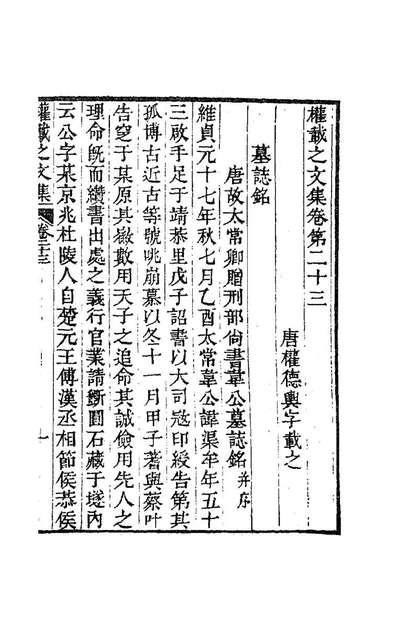 權載之文集卷第二十三
唐權德輿字載之
墓誌銘
唐故太常卿贈刑部尚書韋公墓誌銘并序
維貞元十七年秋七月乙酉太常韋公諱渠牟年五十
三啟手足于靖恭里戊子詔書以大司寇印綬告第其
孤博古近古等號咷崩慕以冬十一月甲子著與蔡叶
告窆于某原其徽數用天子之追命其誠儉用先人之
理命既而纘書出處之義行官業請斵圓石藏于墬內
云公字某京兆杜陵人自楚元王傅漢丞相節侯恭侯
權載之文集
卷二十三
一